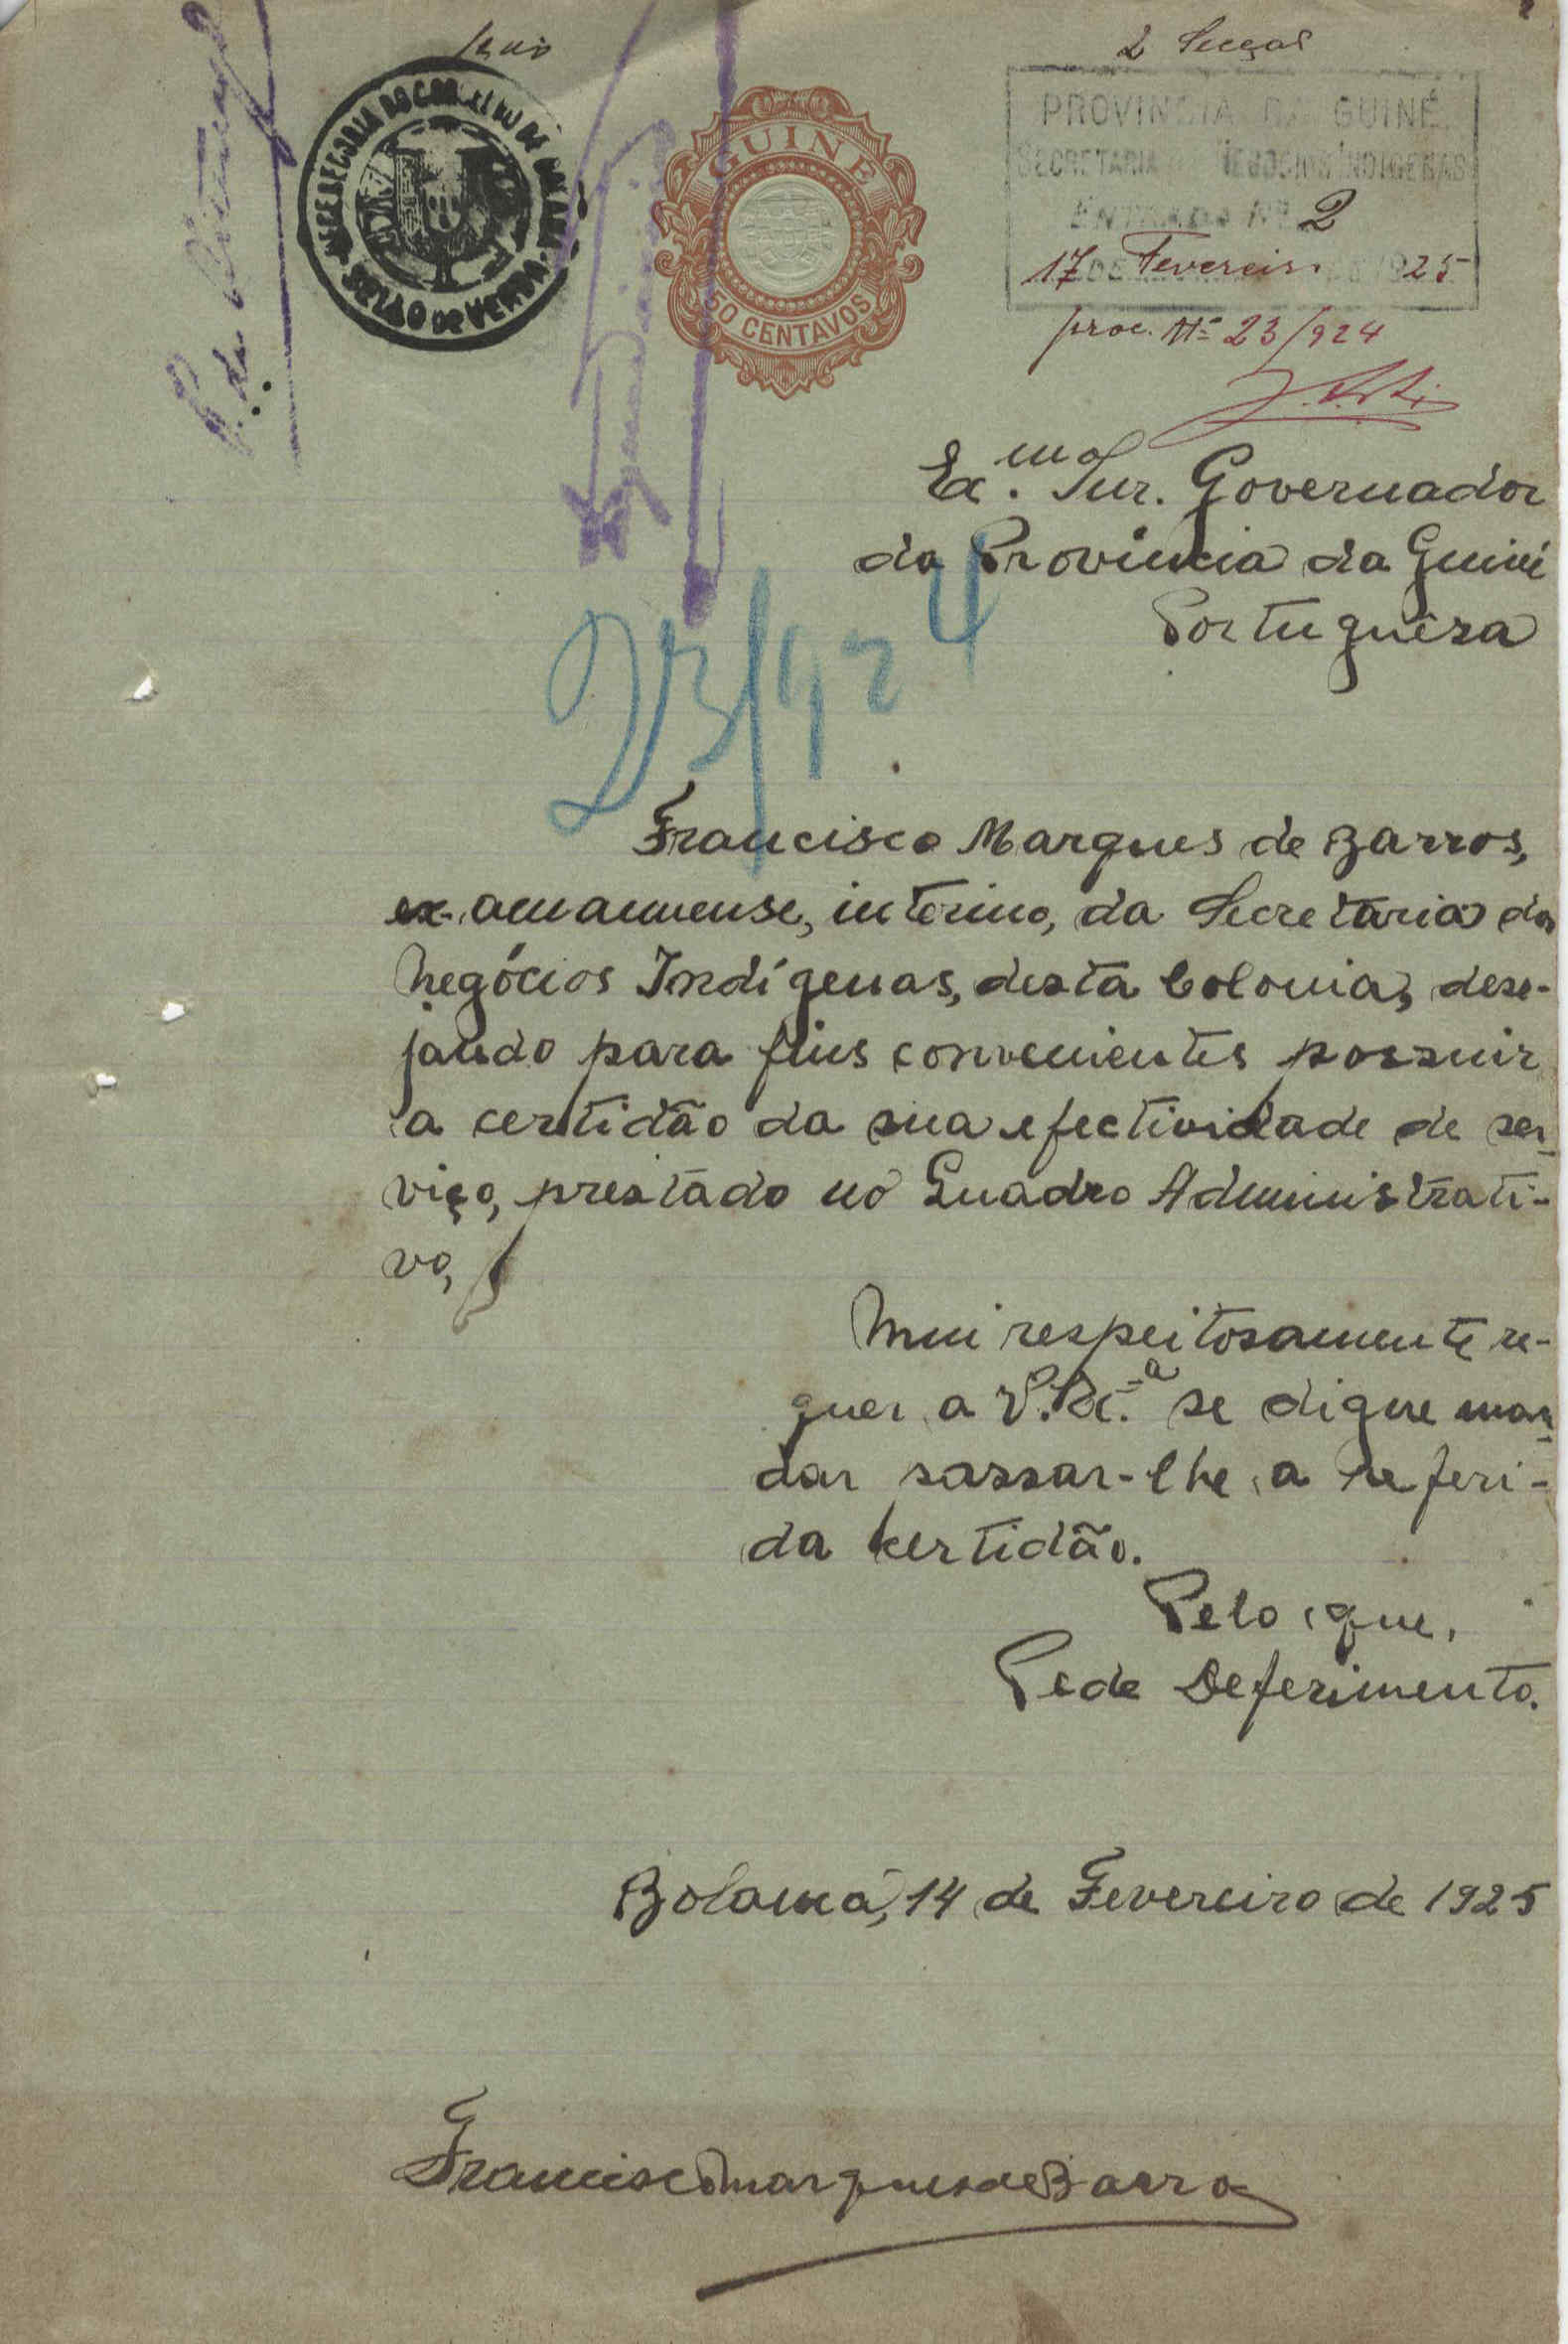 2 Secção
PROVINCIA DA GUINÉ
SECRETARIA NEGOCIOS INDIGENAS
ENTRADA Nº 2
17 DE Fevereiro DE 1925
proc. Nº 23/924
SELO DE VERBA
GUINÉ
50 CENTAVOS
Ex.mo Snr. Governador
da Província da Guiné
Portuguêsa
23/924
Francisco Marques de Barros,
ex-amanuense, interino, da Secretaria dos
Negócios Indígenas, desta Colonia, dese-
jando para fins convenientes possuir
a certidão da sua efectividade de ser-
viço, prestado no Quadro Administrati-
vo,
Mui respeitosamente re-
quer a V. Ex.ª se digne man-
dar passar-lhe a referi-
da certidão.
Pelo que,
Pede Deferimento.
Bolama, 14 de Fevereiro de 1925
Francisco Marques de Barros